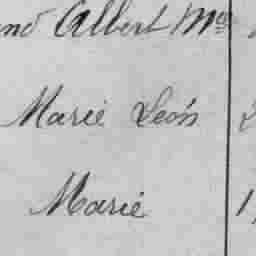 Albert M
Marie León
Marie